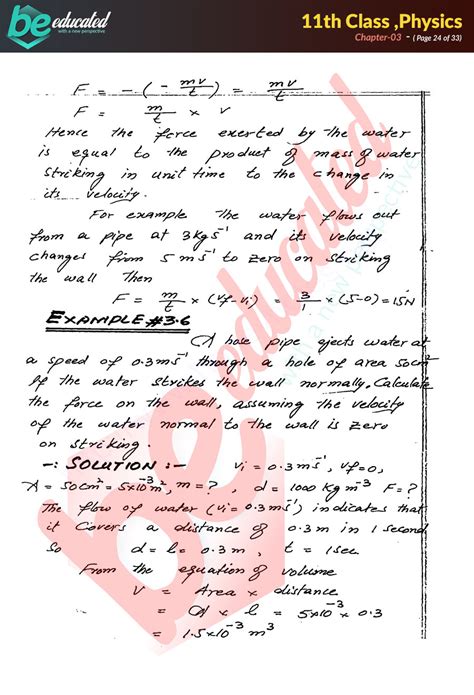 be educated
with a new perspective
11th Class ,Physics
Chapter-03 - ( Page 24 of 33)
F = -(- mv/t) = mv/t
F = m/t × v
Hence the force exerted by the water
is equal to the product of mass of water
striking in unit time to the change in
its velocity.
For example the water flows out
from a pipe at 3kgs⁻¹ and its velocity
changes from 5 ms⁻¹ to zero on striking
the wall Then
F = m/t × (vf-vi) = 3/1 × (5-0) = 15N
EXAMPLE #3.6
A hose pipe ejects water at
a speed of 0.3ms⁻¹ through a hole of area 50cm²
If the water strikes the wall normally, Calculate
the force on the wall, assuming the velocity
of the water normal to the wall is zero
on striking.
-: SOLUTION :- vi = 0.3ms⁻¹, vf=0,
A = 50cm² = 5×10⁻³m², m = ?, d = 1000 kg m⁻³ F = ?
The flow of water (vi = 0.3ms⁻¹) indicates that
it Covers a distance of 0.3m in 1 second
So d = l = 0.3m, t = 1sec
From the equation of volume
V = Area × distance
= A × l = 5×10⁻³ × 0.3
= 1.5×10⁻³ m³
be educated
with a new perspective